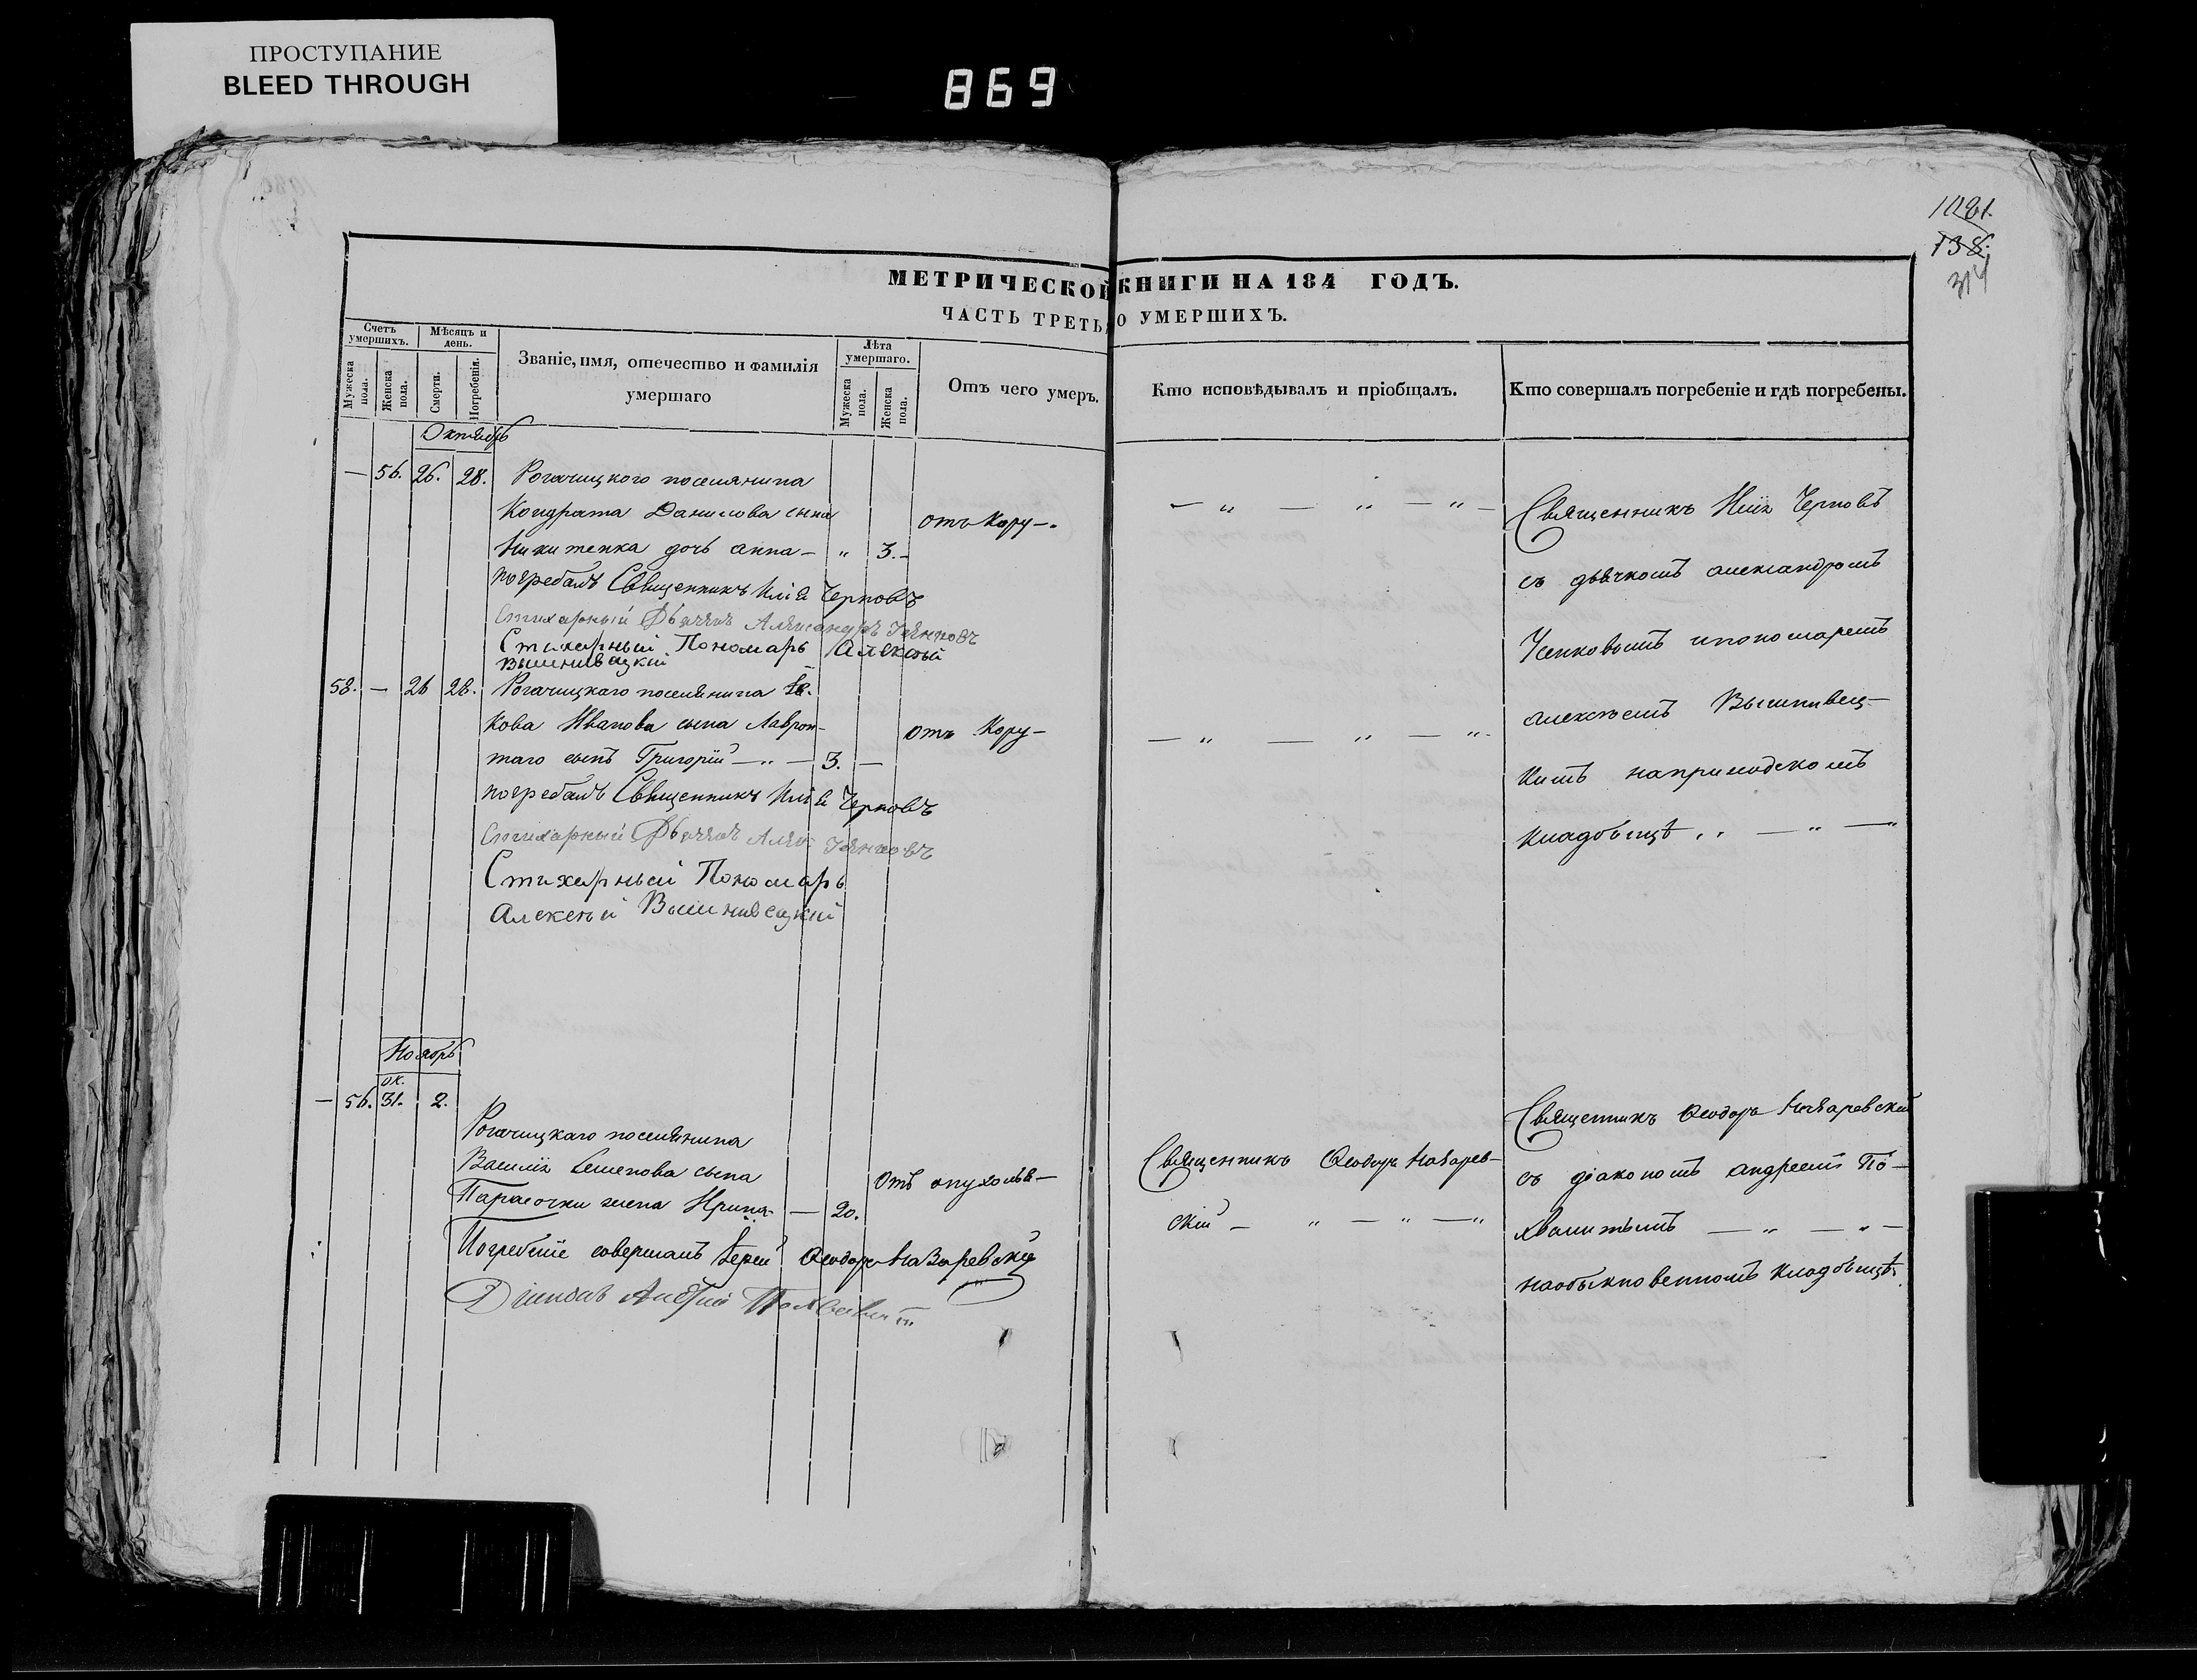 ПРОСТУПАНИЕ
BLEED THROUGH
869
1121.
138.
314
МЕТРИЧЕСКОЙ КНИГИ НА 184 ГОДЪ.
ЧАСТЬ ТРЕТЬЯ О УМЕРШИХЪ.
Счетъ умершихъ.
Мужеска пола.
Женска пола.
Мѣсяцъ и день.
Смерти.
Погребенія.
Званіе, имя, отечество и фамилія
умершаго
Лѣта умершаго.
Мужеска пола.
Женска пола.
Отъ чего умеръ.
Кто исповѣдывалъ и пріобщалъ.
Кто совершалъ погребеніе и гдѣ погребены.
Октябрь
— 56. 26. 28. Рогачицкого поселянина
Кондрата Данилова сына отъ Кору —.
Никитенка дочь анна — „ 3. —
погребалъ Священникъ Илія Черновъ
Стихарный Дьячекъ Александръ Усенковъ
Стихарный Пономарь Алексѣй
Вишнивецкий
— „ — „ — „ —
Священникъ Илія Черновъ
съ дьячкомъ александромъ
Усенковымъ и пономаремъ
алексѣемъ Вышнивец-
кимъ на приходскомъ
кладбищѣ „ — „ — „
58. — 26 28. Рогачицкаго поселянина Я-
кова Иванова сына Лаврон- отъ Кору —
таго сынъ Григорій — „ — 3. —
погребалъ Священникъ Илія Черновъ
Стихарный Дьячекъ Алек Усенковъ
Стихарный Пономарь
Алексѣй Вишнивецкий
— „ — „ — „ —
Ноябрь
ок.
— 56. 31. 2.
Рогачицкаго поселянина
Василія Семенова сына
отъ опухоли —
жена Ирина — 20.
Погребеніе совершалъ Іерей Ѳеодоръ Назаревскій
Священникъ Ѳеодоръ Назарев-
скій — „ — „ — „
Священникъ Ѳеодоръ Назаревскій
съ діакономъ андреемъ По-
хвалитымъ — „ — „ —
на обыкновенномъ кладбищѣ.